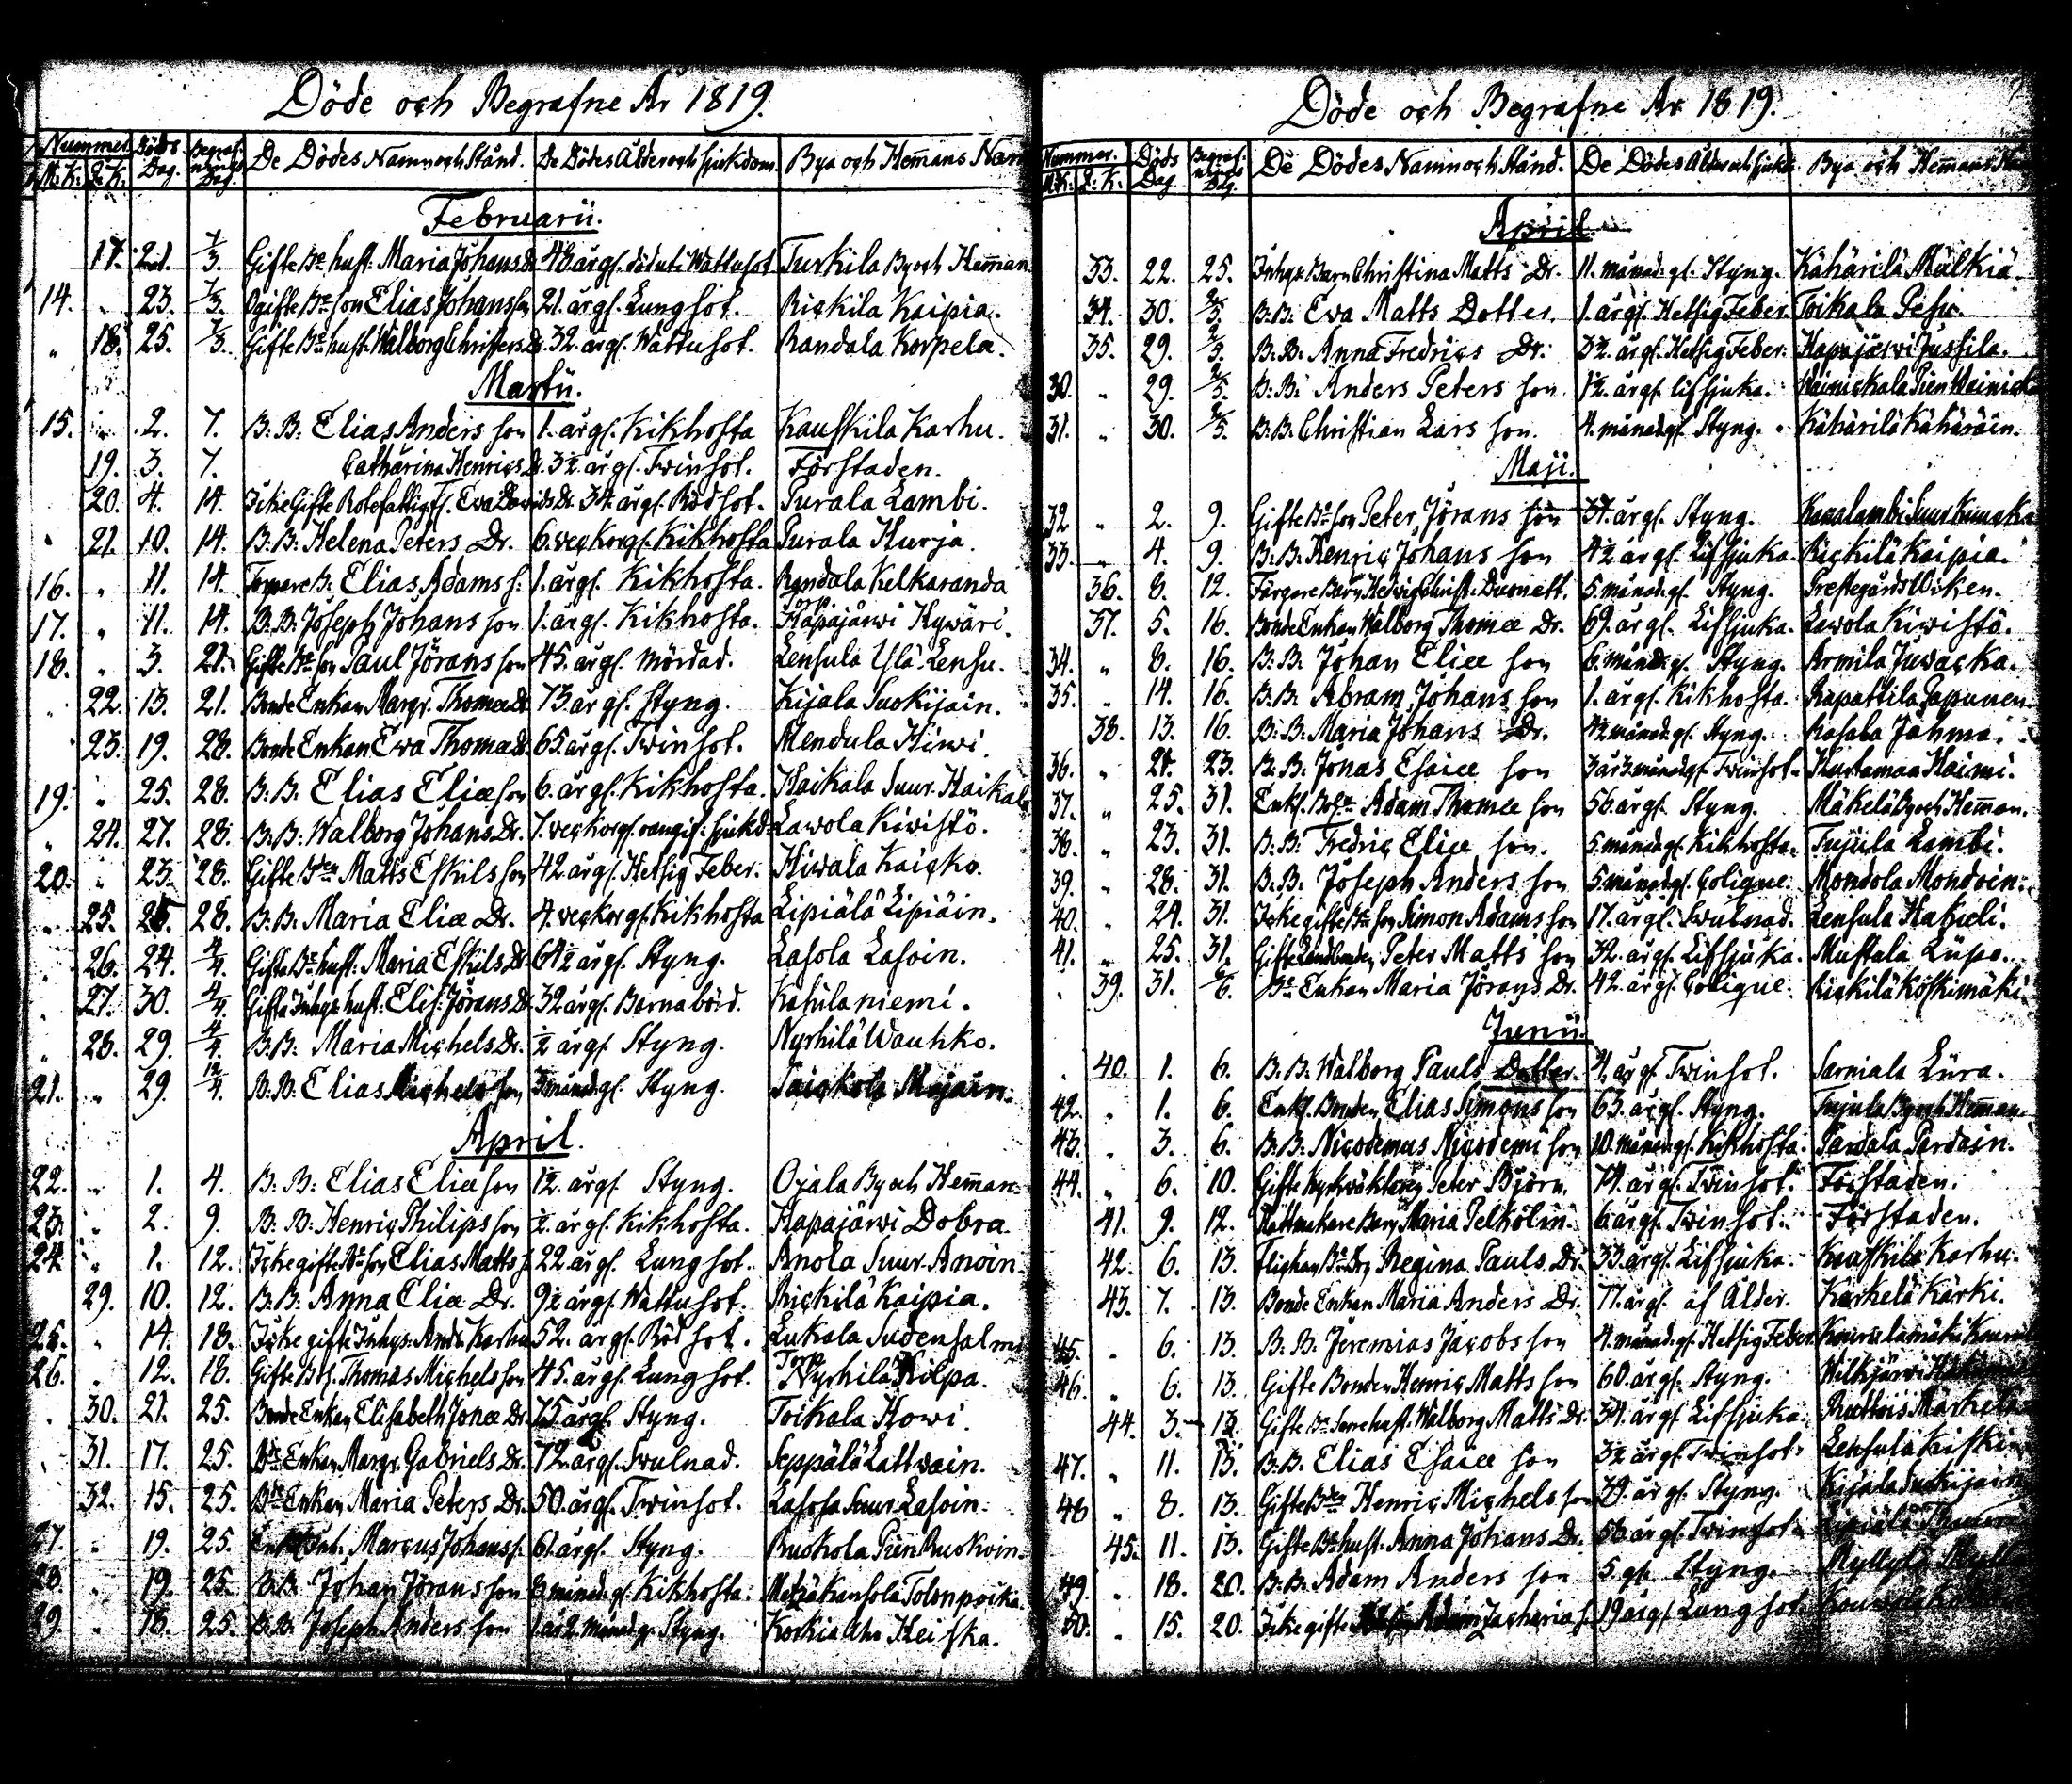 Döde och Begrafne År 1819.
Nummer. Döds Dag. Begrafnings Dag. De Dödes Namn och Stånd. De Dödes Ålder och Sjukdom. Bya och Hemans Nam
M.K. Q.K.
Februarii.
17. 21. 7/3. Gifte Bde hust. Maria Johans Dr. 48. årgl. död uti Wattusot Turkila By och Heman
14. " 23. 7/3. Ogifte Bde son Elias Johansson 21. årgl. Lungsot. Rickilä Kaipia.
" 18. 25. 7/3. Gifte Bde hust. Walborg Christers Dr. 32. årgl. Wattusot. Randala Korpela.
Martii.
15. " 2. 7. B: B: Elias Anders son 1. årgl. Kikhosta Kauskila Karhu.
19. 3. 7. Catharina Henrics Dr. 3½ årgl. Twinsot. Förstaden.
20. 4. 14. Icke Gifte Rotefattig Eva Davids Dr. 34. årgl. Rödsot. Purala Lambi.
" 21. 10. 14. B: B: Helena Peters Dr. 6. veckorgl. Kikhosta Purala Hurja.
16. " 11. 14. Torpare B: Elias Adams s: 1. årgl. Kikhosta. Randala Kelkaranda Torp.
17. " 11. 14. B: B: Joseph Johans son 1. årgl. Kikhosta. Hapajärwi Hywäri.
18. " 3. 21. Gifte Bde son Paul Jörans son 45. årgl. Mördad. Lensula Ylä-Lensu.
" 22. 13. 21. Bonde Enkan Margr. Thomæ Dr. 73. årgl. Styng. Kijala Suokijain.
23. 19. 28. Bonde Enkan Eva Thomæ Dr. 65. årgl. Twinsot. Mendula Hiwi.
19. " 25. 28. B: B: Elias Eliæ son 6. årgl. Kikhosta. Haikala Suur-Haikala
" 24. 27. 28. B: B: Walborg Johans Dr. 7. veckorgl. oangif. sjukd. Lawola Kiwistö.
20. " 23. 28. Gifte Bden Matts Eskils son 42. årgl. Hetsig Feber. Hiwala Kaicko.
" 25. 25. 28. B: B: Maria Eliæ Dr. 4. veckorgl. Kikhosta Lipiälä Lipiäin.
" 26. 24. 4/4. Gifte Bde hust. Maria Eskils Dr. 64½ årgl. Styng. Lasola Lasoin.
" 27. 30. 4/4. Gifta Inhys hust. Elis: Jörans Dr. 32. årgl. Barnabörd. Kahilaniemi.
" 28. 29. 4/4. B: B: Maria Michels Dr. ½ årgl. Styng. Nyrhilä Wauhko.
21. " 29. 12/4. B: B: Elias Michels son 3 månad. gl. Styng.
April.
22. " 1. 4. B: B: Elias Eliæ son 1½. årgl. Styng. Ojala By och Heman.
23. " 2. 9. B: B: Henric Philips son ½. årgl. Kikhosta. Hapajärwi Dobra.
24. " 1. 12. Icke gifte Bde son Elias Matts s. 22. årgl. Lungsot. Anola Suur-Anoin.
29. 10. 12. B: B: Anna Eliæ Dr. 9½ årgl. Wattusot. Rickilä Kaipia.
25. " 14. 18. Icke gifte Inhys. And: Karhu 52. årgl. Rödsot. Lukala Sudensalmi Torp
26. " 12. 18. Gifte Thomas Michels son 45. årgl. Lungsot. Nyrhilä Hilpa.
30. 21. 25. Bonde Enkan Elisabeth Jonæ Dr. 75 årgl. Styng. Toikala Howi.
31. 17. 25. Bde Enkan Margr. Gabriels Dr. 72. årgl. Swulnad. Seppälä Lattwain.
32. 15. 25. Bde Enkan Maria Peters Dr. 50. årgl. Twinsot. Lasola Suur Lasoin.
27. " 19. 25. Marcus Johans s. 61. årgl. Styng. Ruokola Pien Ruokoin.
28. " 19. 25. B: B: Johan Jörans son 8 månad. gl. Kikhosta. Metsäkansola Tolonpoika.
29. " 18. 25. B: B: Joseph Anders son 1. år 2. månad. gl. Styng. Korkia Aho Heiska.
Döde och Begrafne År 1819.
Nummer. Döds Dag. Begrafnings Dag. De Dödes Namn och Stånd. De Dödes Ålder och Sjukd. Bya och Hemans
M.K. Q.K.
April.
33. 22. 25. Inhys Barn Christina Matts Dr. 11. månad. gl. Styng. Kähärilä Mälkiä.
34. 30. 2/5. B: B: Eva Matts Dotter. 1. årgl. Hetsig Feber. Toikala Pesu.
35. 29. 2/5. B: B: Anna Fredrics Dr. 3½. årgl. Hetsig Feber. Hapajärwi Jussila.
30. " 29. 2/5. B: B: Anders Peters son. 1½. årgl. Lifsjuka. Wainickala Pien Wainick
31. " 30. 2/5. B: B: Christian Lars son. 4. månad. gl. Styng. Kähärilä Kähäräin.
Maji.
32. " 2. 9. Gifte Bde son Peter Jörans son 37. årgl. Styng.
33. " 4. 9. B: B: Henric Johans son 4½ årgl. Lifsjuka. Rickilä Kaipia.
36. 8. 12. Färgare Barn Hedvig Christ. 5. månad. gl. Styng. Prestegårds Wiken.
37. 5. 16. Bonde Enkan Walborg Thomæ Dr. 69. årgl. Lifsjuka. Lawola Kiwistö.
34. " 8. 16. B: B: Johan Eliæ son 6. månad. gl. Styng. Armila Juwacka.
35. " 14. 16. B: B: Abram Johans son 1. årgl. Kikhosta. Rapattila Papunen.
38. 13. 16. B: B: Maria Johans Dr. 4½ månad. gl. Styng. Rasala Jähmä.
36. " 21. 23. B: B: Jonas Esaiæ son 3 år 3. månad. gl. Twinsot. Hurtamaa Haimi.
37. " 25. 31. Enkl. Adam Thomæ son 56. årgl. Styng. Mäkelä By och Heman.
38. " 23. 31. B: B: Fredric Eliæ son. 5. månad. gl. Kikhosta. Tujula Lambi.
39. " 28. 31. B: B: Joseph Anders son 5 månad. gl. Colique. Mondola Mondoin.
40. " 24. 31. Icke gifte Bde son Simon Adams son 17. årgl. Swulnad. Lensula Hakuli.
41. " 25. 31. Gifte Landbonden Peter Matts son 32. årgl. Lifsjuka. Mustala Lüpo.
39. 31. 6/6. Bde Enkan Maria Jörans Dr. 42. årgl. Colique. Rickilä Koskimäki.
Junii.
40. 1. 6. B: B: Walborg Pauls Dotter. 4. årgl. Twinsot. Sarviala Lüra.
42. " 1. 6. Enkl. Bonden Elias Simons son 63. årgl. Styng. Tujula By och Heman.
43. " 3. 6. B: B: Nicodemus Nicodemi son 10. månad. gl. Kikhosta. Pardala Pardain.
44. " 6. 10. Gifte Kyrkväktaren Peter Björn. 74. årgl. Twinsot. Förstaden.
41. 9. 12. Hattmakare Barn Maria Pelkolin. 6. årgl. Twinsot. Förstaden.
42. 6. 13. Flickan Bde Dr. Regina Pauls Dr. 33. årgl. Lifsjuka. Kauskila Karhu.
43. 7. 13. Bonde Enkan Maria Anders Dr. 77. årgl. af Ålder. Kärkelä Kärki.
45. " 6. 13. B: B: Jeremias Jacobs son 4. månad. gl. Hetsig Feber
46. " 6. 13. Gifte Bonden Henric Matts son 60. årgl. Styng. Wilkjärwi
44. 3. 13. Gifte Bde Sonehust. Walborg Matts Dr. 34. årgl. Lifsjuka. Ruttois Märkelä
47. " 11. 13. B: B: Elias Esaiæ son 3½ årgl. Twinsot. Lensula
48 " 8. 13. Gifte Bden Henric Michels son 39. årgl. Styng. Kijala Suokijain
45. 11. 13. Gifte Bde hust. Anna Johans Dr. 56. årgl. Twinsot.
49. " 18. 20. B: B: Adam Anders son 5 gl. Styng.
50. " 15. 20. Icke gifte Adam Zachariæ s. 19 årgl. Lungsot.